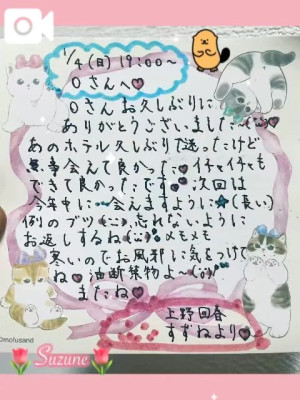 1/4(日)19:00〜
Oさんへ♥
Oさんお久しぶりに
ありがとうございました♥
あのホテル久しぶりで迷ったけど
無事会えて良かった♥イチャイチャも
できて良かったです♥次回は
今年中に…会えますように☆(長い)
例のブツ 忘れないように
お返しするね メモメモ
寒いのでお風邪に気をつけて
ね♥油断禁物よ〜
またね♥
上野回春
すずねより♥
Suzune
©mofusand